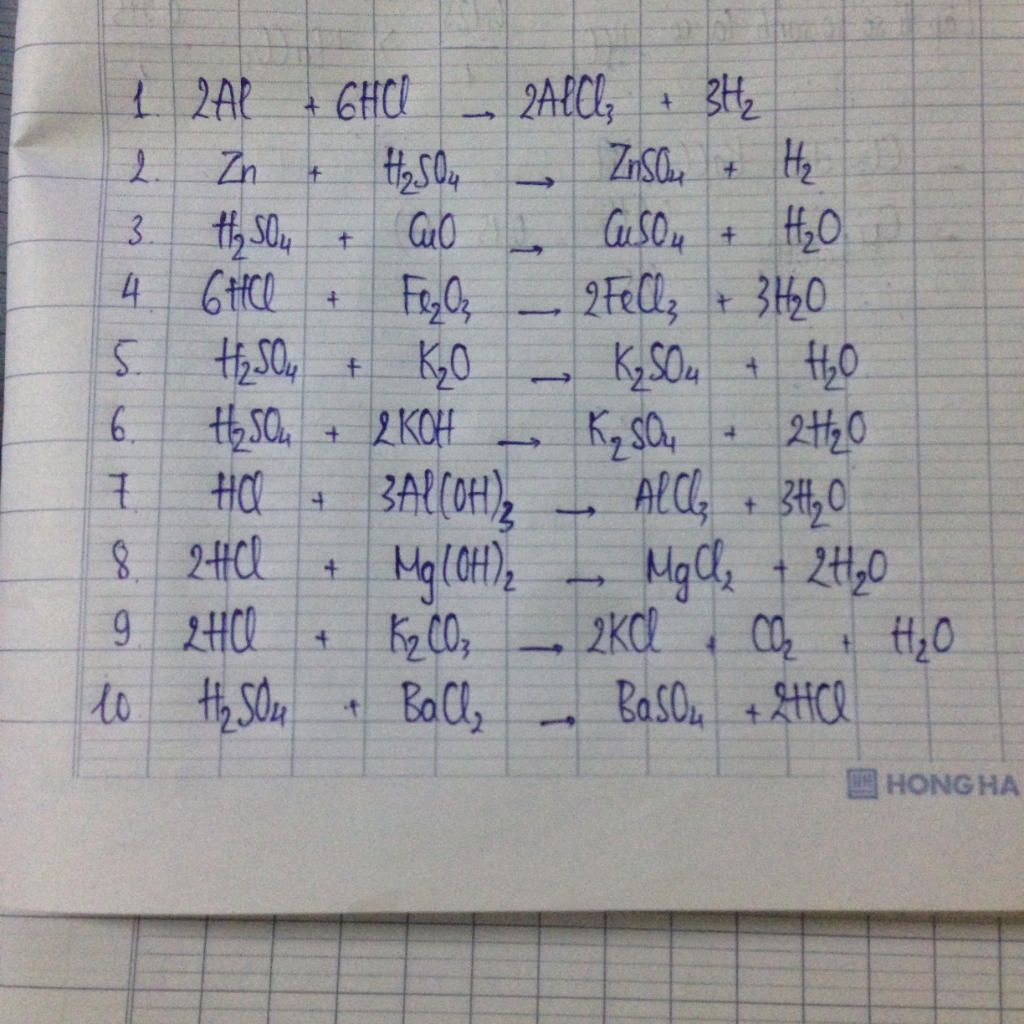 1. 2Al + 6HCl → 2AlCl₃ + 3H₂
2. Zn + H₂SO₄ → ZnSO₄ + H₂
3. H₂SO₄ + CuO → CuSO₄ + H₂O
4 6HCl + Fe₂O₃ → 2FeCl₃ + 3H₂O
5. H₂SO₄ + K₂O → K₂SO₄ + H₂O
6. H₂SO₄ + 2KOH → K₂SO₄ + 2H₂O
7 HCl + 3Al(OH)₃ → AlCl₃ + 3H₂O
8. 2HCl + Mg(OH)₂ → MgCl₂ + 2H₂O
9 2HCl + K₂CO₃ → 2KCl + CO₂ + H₂O
10. H₂SO₄ + BaCl₂ → BaSO₄ + 2HCl
HONG HA